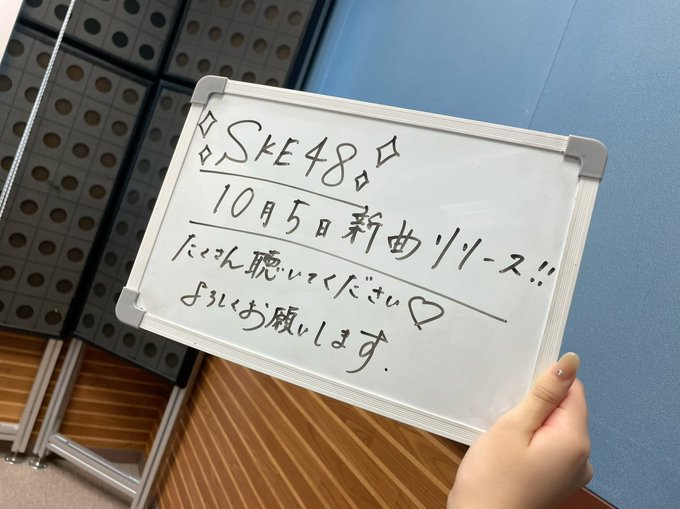 SKE48
10月5日新曲リリース!!
たくさん聴いてください♡
よろしくお願いします.